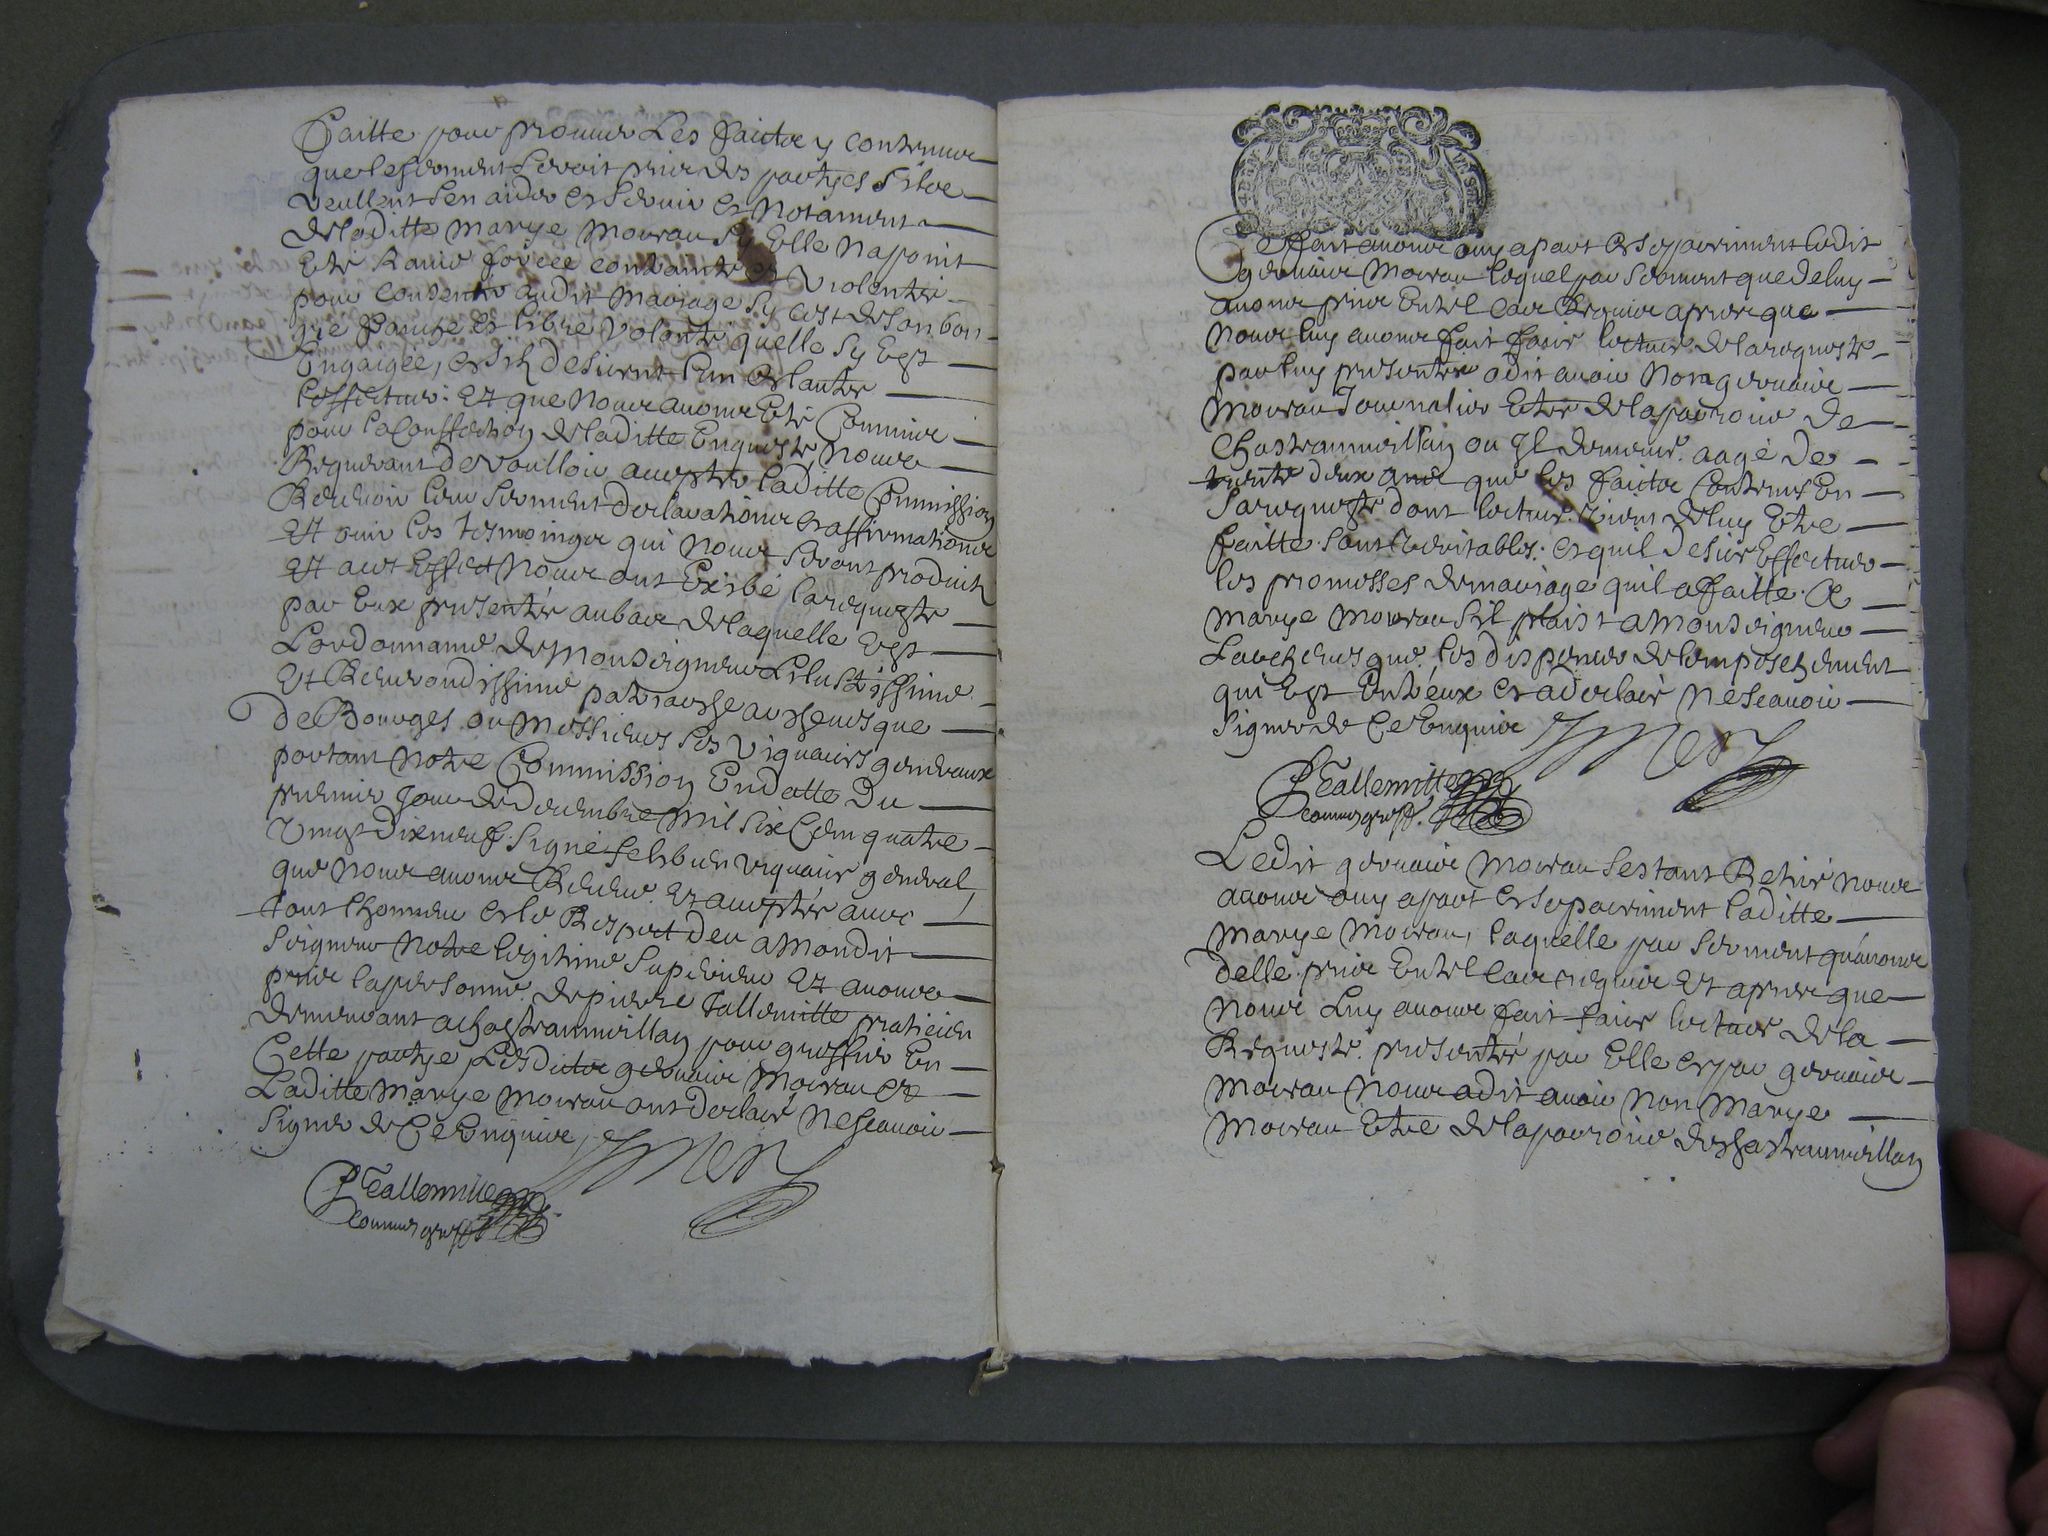 faitte pour prouver Les faictz y contenuz
que le serment seroit prins des partyes silz
veullent sen aider et servir et notamment
de laditte Marye Moreau sy Elle na point
Eté Ravie forcée contrainte et Violentée
pour consentir audit Mariage sy cest de son bon
gré franche et libre volonté quelle sy Est
Engaigée, et silz desirent lun et lautre
leffectuer. Et que Nous avons Eté Commis
pour la Confection de laditte Enqueste Nous
Requerant de voulloir accepter laditte Commission
Recevoir leur serment declarations et affirmations
Et ouir les tesmoings qui nous seront produitz
Et a cet Effect Nous ont Exibé la requeste
par Eux presentée au bas de laquelle Est
Lordonnance de Monseigneur Lilustrissime
Et Reverendissime patriarche archevesque
De Bourges ou Messieurs ses viquaires generaux
portant Notre Commission En datte Du
premier Jour de Decembre Mil six Cent quatre
Vingt dix neuf signé viquaire general
que nous avons Receue Et acceptée avec
tout lhonneur et le Respect deu a Mondit
seigneur Notre legitime superieur Et avons
pris la personne de pierre Tallemitte praticien
demeurant a Chastraumeillan pour greffier En
Cette partye Lesdictz gervaise Moreau et
Laditte Marye Moreau ont declaré Ne scavoir
signer de Ce Enquis
P Tallemitte
commis greff.
Ce fait avons ouy a part et separement ledit
gervaise Moreau lequel par serment que de luy
avons pris En tel cas Requis apres que
Nous luy avons fait faire lecture de la requeste
par luy presentée a dit avoir Nom gervaise
Moreau Journalier Etre de la parroisse de
Chastraumeillan ou Il demeure. aagé de
trente deux ans que les faictz Contenus En
sa requeste dont lecture vient de luy Etre
faitte sont veritables. et quil desire Effectuer
les promesses de mariage quil a faitte A
Marye Moreau sil plaist a Monseigneur
Larchevesque les dispenser de lempeschement
qui Est Entreux et a declaré Ne scavoir
signer de Ce Enquis
P Tallemitte
commis greff.
Ledit gervaise Moreau sestant Retiré nous
avons ouy a part et separement laditte
Marye Moreau, laquelle par serment quavons
delle pris En tel cas requis Et apres que
Nous Luy avons fait faire lecture de la
Requeste presentée par Elle et par gervaise
Moreau Nous a dit avoir Nom Marye
Moreau Etre de la parroisse de chastraumeillan